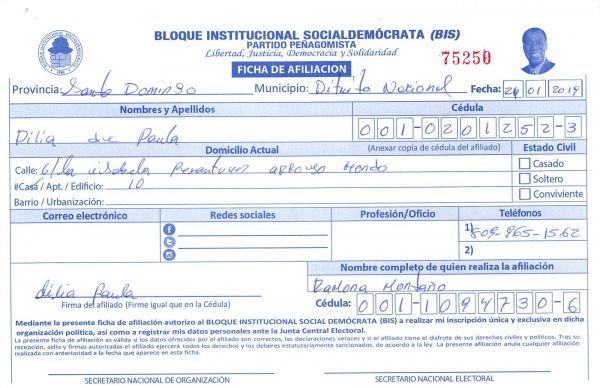 BLOQUE INSTITUCIONAL SOCIALDEMÓCRATA (BIS)
PARTIDO PEÑAGOMISTA
Libertad, Justicia, Democracia y Solidaridad
75250
FICHA DE AFILIACION
Provincia: Santo Domingo Municipio: Ditrito Nacional Fecha: 24 01 2019
Nombres y Apellidos Cédula
Dilia de Paula 001-0201252-3
Domicilio Actual (Anexar copia de cédula del afiliado) Estado Civil
Calle: C/la isabela arroyo Hondo Casado
#Casa / Apt. / Edificio: 10 Soltero
Barrio / Urbanización: Conviviente
Correo electrónico Redes sociales Profesión/Oficio Teléfonos
1) 809-965-1562
2)
Nombre completo de quien realiza la afiliación
dilia Paula Ramona Montaño
Firma del afiliado (Firme igual que en la Cédula) Cédula: 001-1094730-6
Mediante la presente ficha de afiliación autorizo al BLOQUE INSTITUCIONAL SOCIAL DEMÓCRATA (BIS) a realizar mi inscripción única y exclusiva en dicha
organización política, así como a registrar mis datos personales ante la Junta Central Electoral.
La presente ficha de afiliación es válida si los datos ofrecidos por el afiliado son correctos, las declaraciones veraces y si el afiliado tiene el disfrute de sus derechos civiles y políticos. Tras su
recepción, sello y firmas autorizadas el afiliado ejercerá todos los derechos y los deberes estatutariamente sancionados, de acuerdo a la ley. La presente afiliación anula cualquier afiliación
realizada con anterioridad a la fecha que aparece en esta ficha.
SECRETARIO NACIONAL DE ORGANIZACIÓN SECRETARIO NACIONAL ELECTORAL